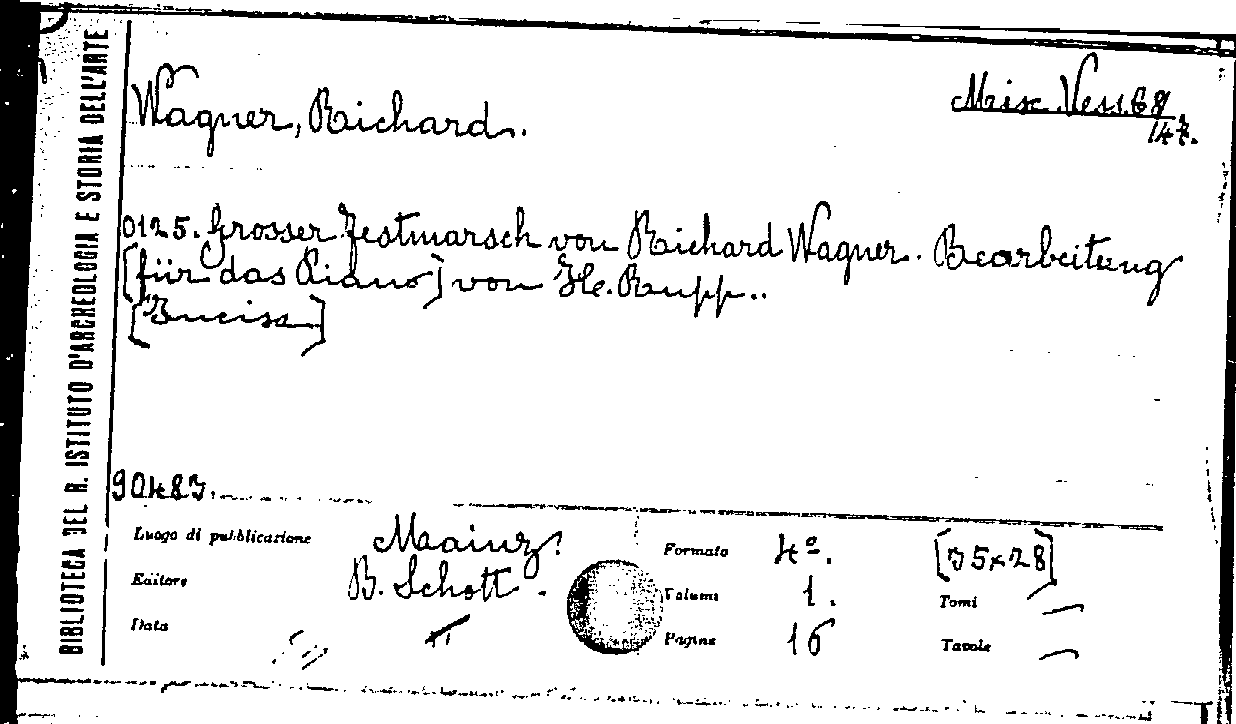 BIBLIOTECA DEL R. ISTITUTO D'ARCHEOLOGIA E STORIA DELL'ARTE
Wagner, Richard.
Misc. Vess. 68
147.
0125. Grosser Festmarsch von Richard Wagner. Bearbeitung
[für das Piano] von H. Rupp..
[Incisa]
90483.
Luogo di pubblicazione Mainz. Formato 4º. [35x28]
Editore B. Schott. Volumi 1. Tomi —
Data Pagine 16 Tavole —